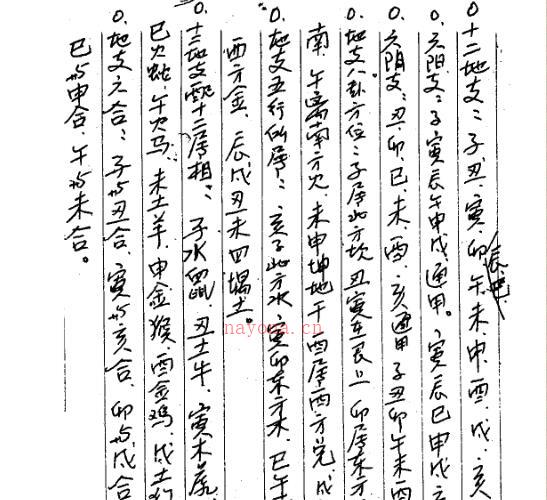 0十二地支：子丑、寅、卯辰巳午未申、酉、戌、亥
0.六阳支：子寅辰午申戌，通用。寅辰巳申戌
0.六阴支：丑、卯、巳、未、酉、亥通用 子丑卯午未酉
0.地支八卦方位：子居北方坎 丑寅在艮上 卯居东方
南、午离南方火、未申坤地干 酉居西方兑、戌
0.地支五行所属：亥子北方水、寅卯东方木、巳午
西方金、辰戌丑未四塌土。
0.十二地支配十二属相：子水鼠、丑土牛、寅木
巳火蛇、午火马、未土羊、申金猴、酉金鸡、戌土狗
0.地支六合：子与丑合、寅与亥合、卯与戌合
巳与申合、午与未合。
nayona.cn